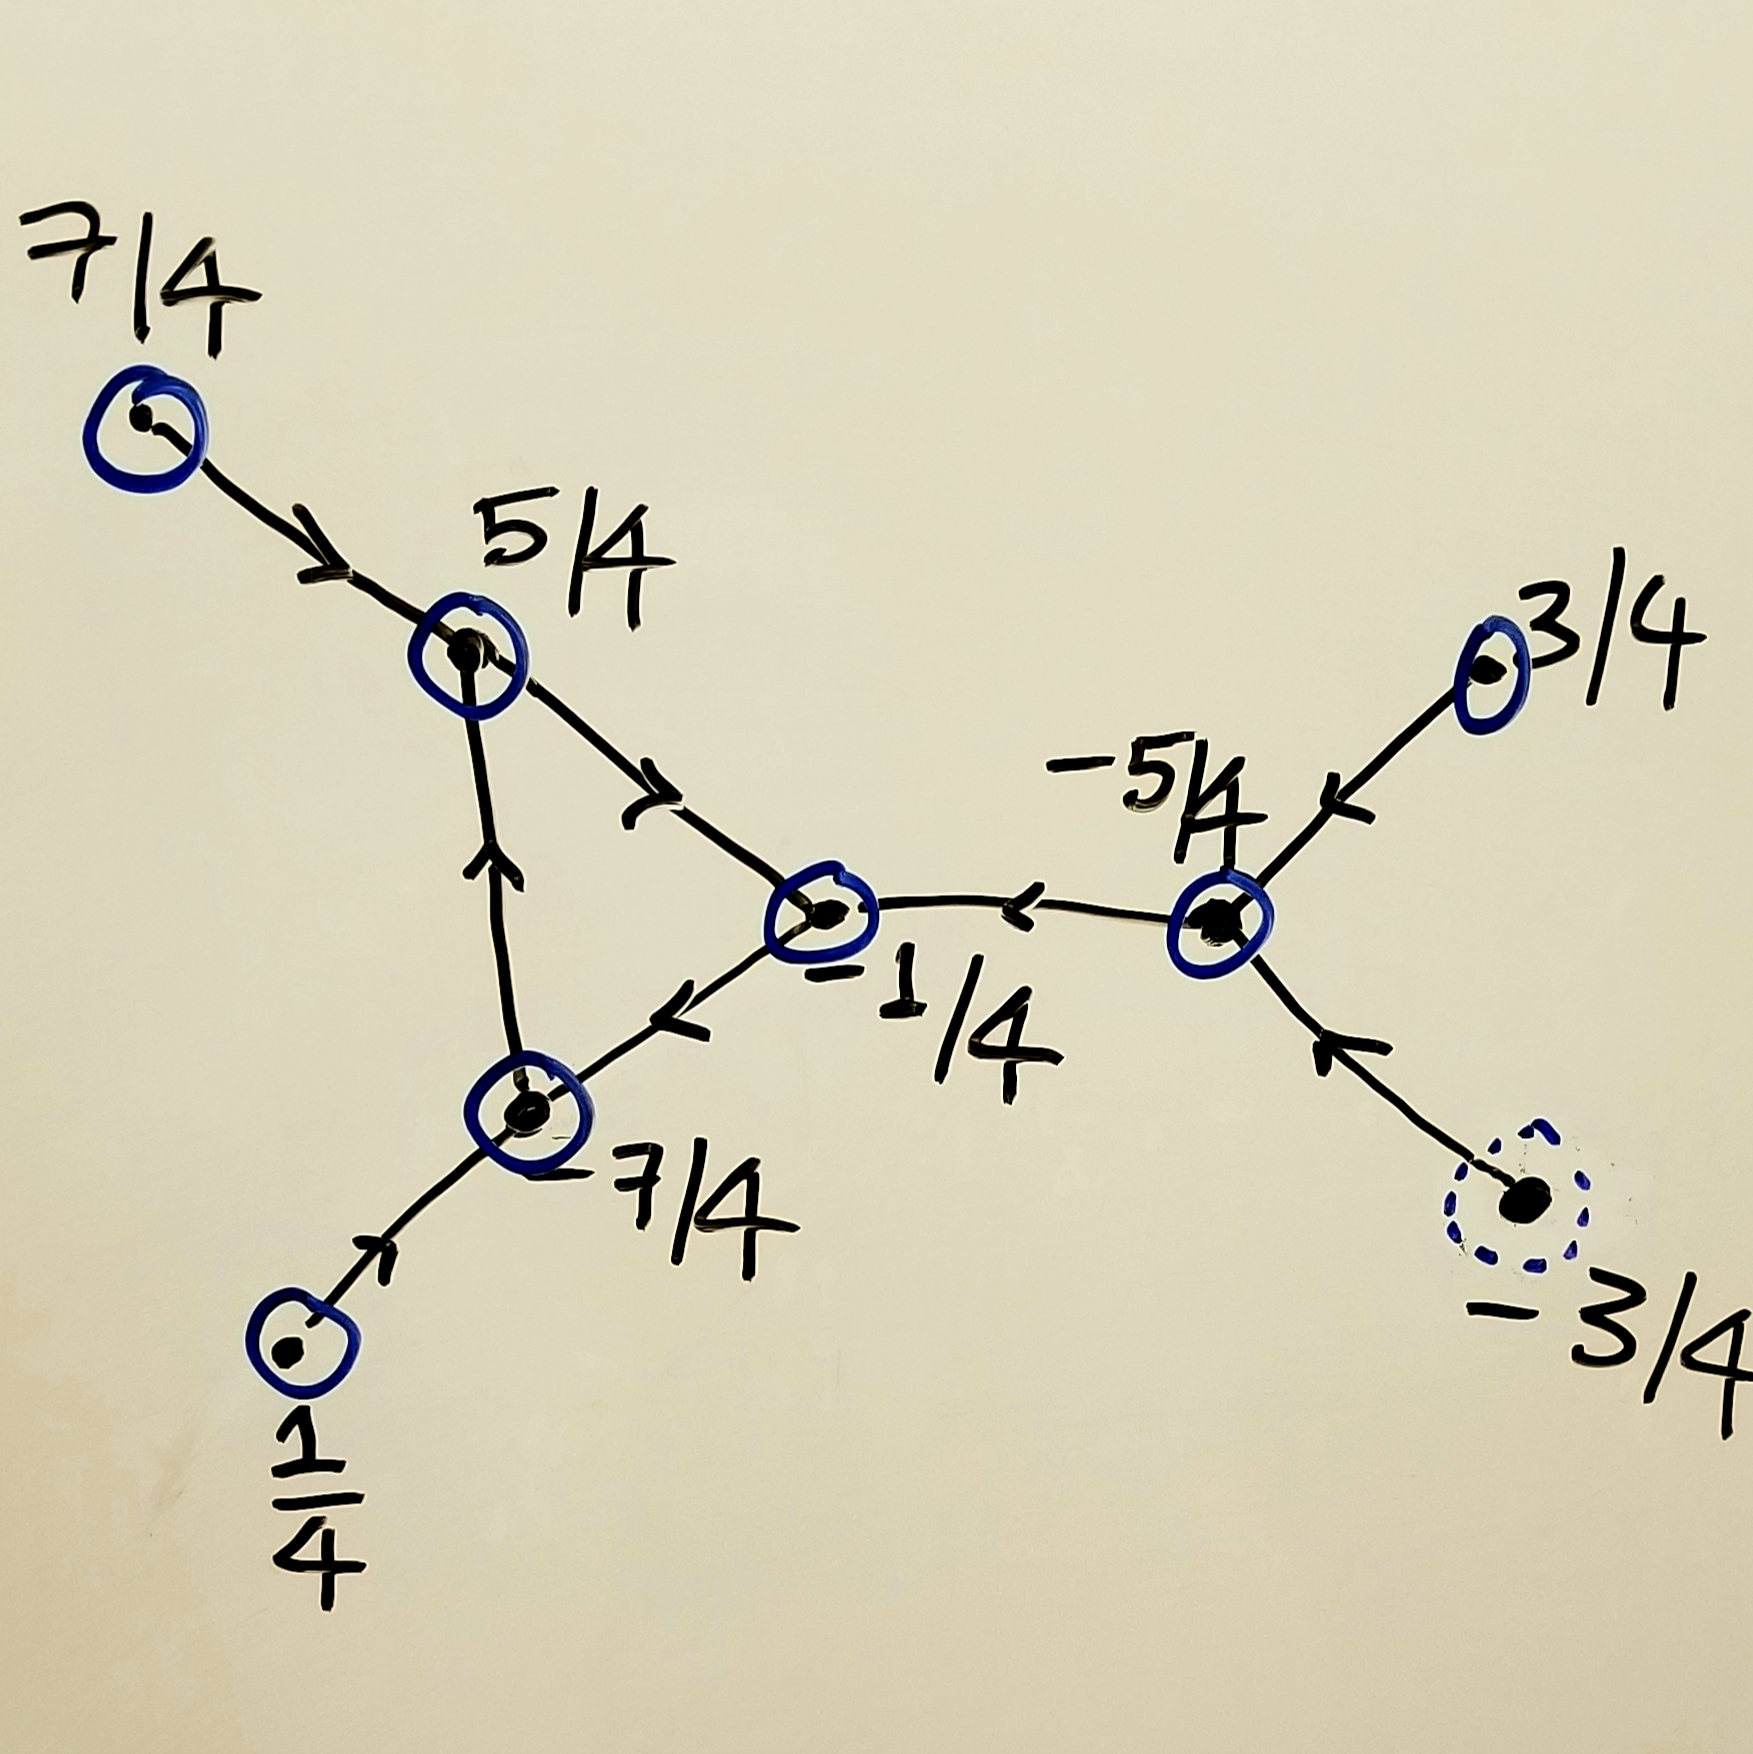 7/4
5/4
3/4
-5/4
-1/4
-7/4
-3/4
1
4